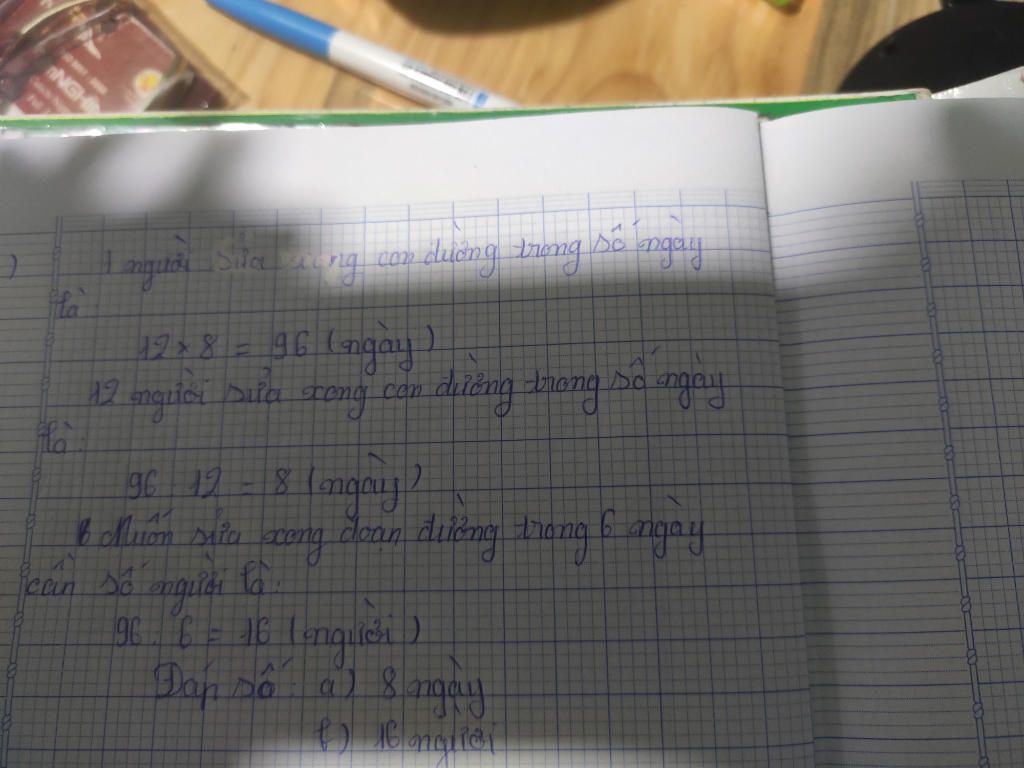 )
1 người sửa xong con đường trong số ngày
là:
12 × 8 = 96 (ngày)
12 người sửa xong con đường trong số ngày
là:
96 : 12 = 8 (ngày)
Muốn sửa xong đoạn đường trong 6 ngày
cần số người là:
96 : 6 = 16 (người)
Đáp số: a) 8 ngày
b) 16 người